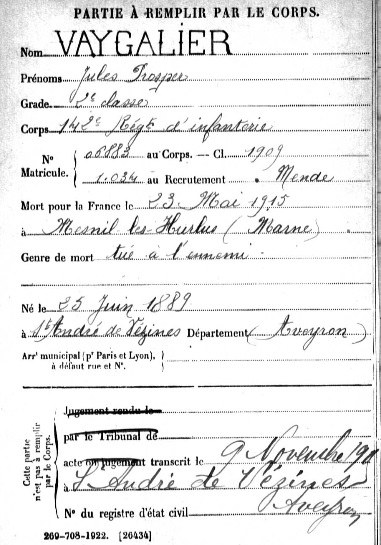 PARTIE À REMPLIR PAR LE CORPS.
Nom VAYGALIER
Prénoms Jules Prosper
Grade 2e classe
Corps 142e Régt d'infanterie
N° Matricule. { 06883 au Corps. — Cl. 1909
1.034 au Recrutement . Mende
Mort pour la France le 23 Mai 1915
à Mesnil les Hurlus (Marne)
Genre de mort tué à l'ennemi
Né le 25 Juin 1889
à St André de Vézines Département (Aveyron)
Arrt municipal (pr Paris et Lyon),
à défaut rue et N°.
Cette partie n'est pas à remplir par le Corps.
Jugement rendu le
par le Tribunal de
acte ou jugement transcrit le 9 Novembre
à St André de Vézines
Aveyron
N° du registre d'état civil
269-708-1922. [26434]